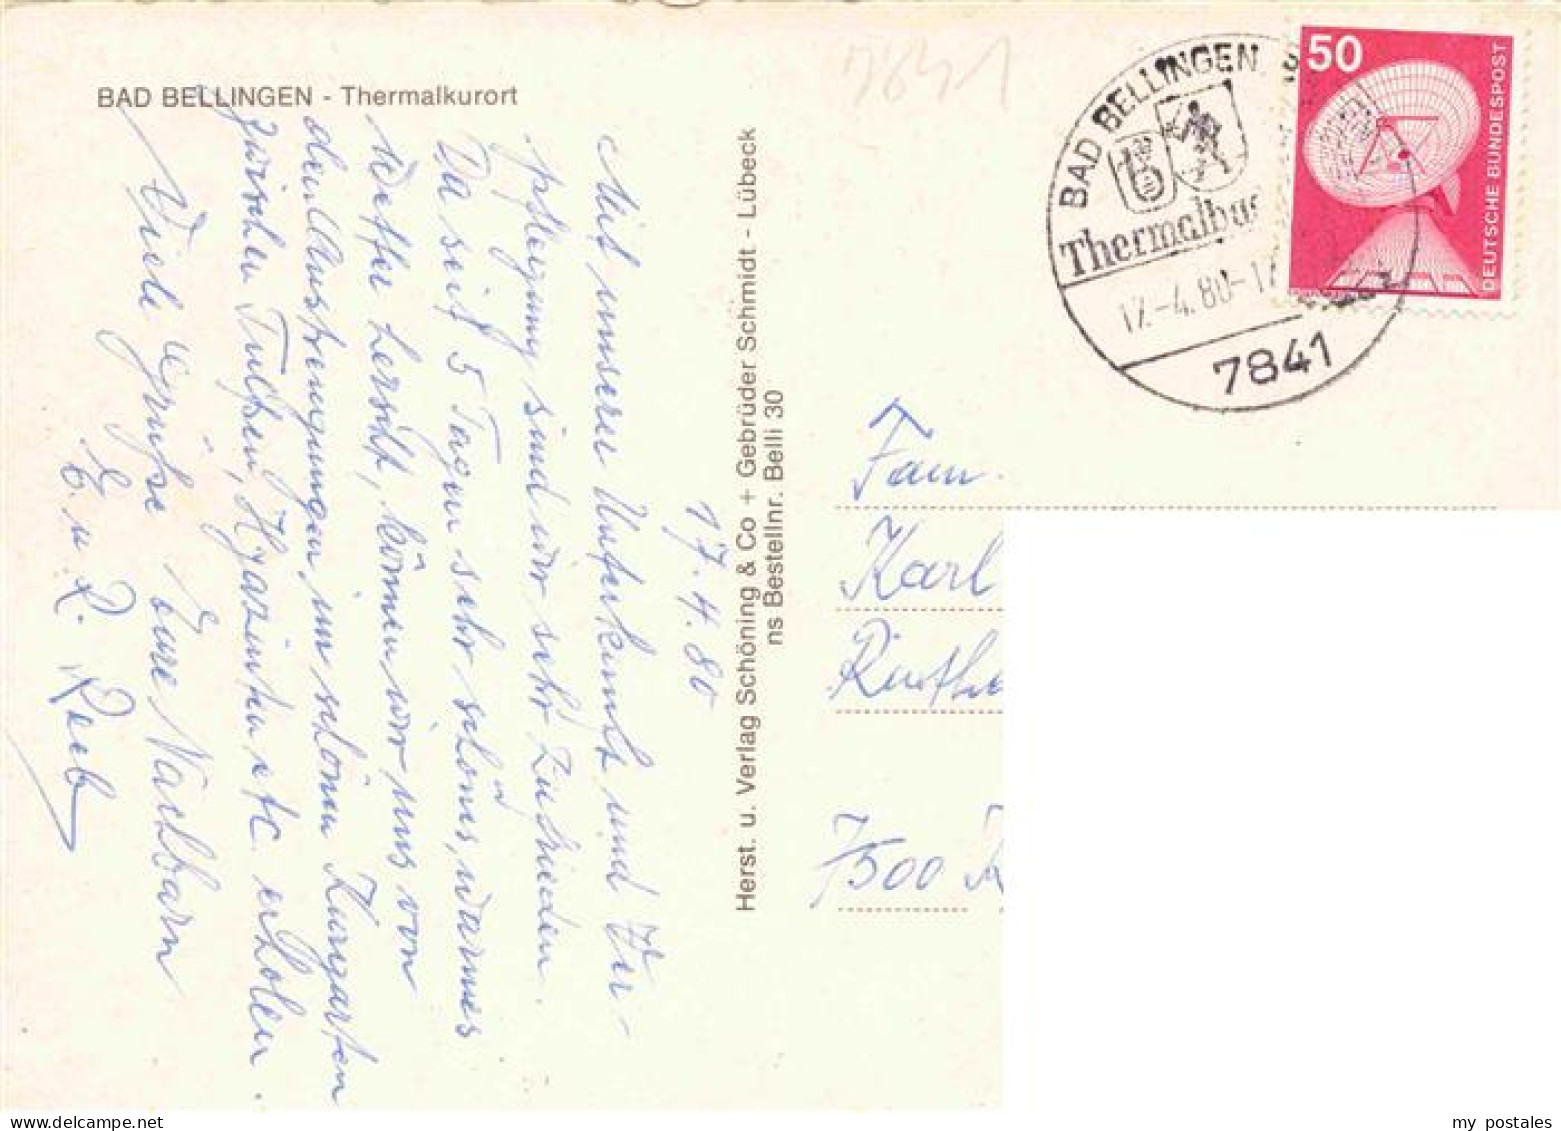 BAD BELLINGEN - Thermalkurort
17.4.80
Mit unserer Unterkunft und Ver-
pflegung sind wir sehr zufrieden.
Da seit 5 Tagen sehr schönes, warmes
Wetter herrscht, können wir uns von
den Anstrengungen im schönen Kurgarten
zwischen Tulpen, Hyazinten etc. erholen.
Viele Grüße Eure Nachbarn
E. u. R. Reeb
Herst. u. Verlag Schöning & Co + Gebrüder Schmidt - Lübeck
ns Bestellnr. Belli 30
7841
BAD BELLINGEN
b
Thermalba
17.-4.80-17
7841
50
DEUTSCHE BUNDESPOST
Fam.
Karl
7500 K
my postales